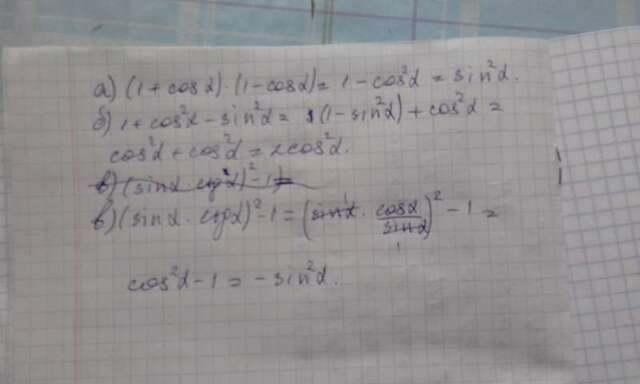 а) (1+cosα)·(1-cosα)= 1-cos²α = sin²α.
б) 1+cos²α-sin²α= (1-sin²α)+cos²α =
cos²α+cos²α=2cos²α.
в) (sinα·ctgα)²-1=
в) (sinα·ctgα)²-1=(sinα·cosα/sinα)²-1=
cos²α-1=-sin²α.